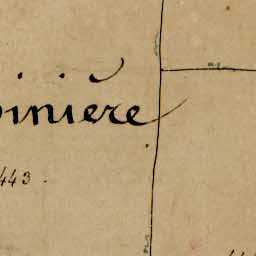 pinière
443.